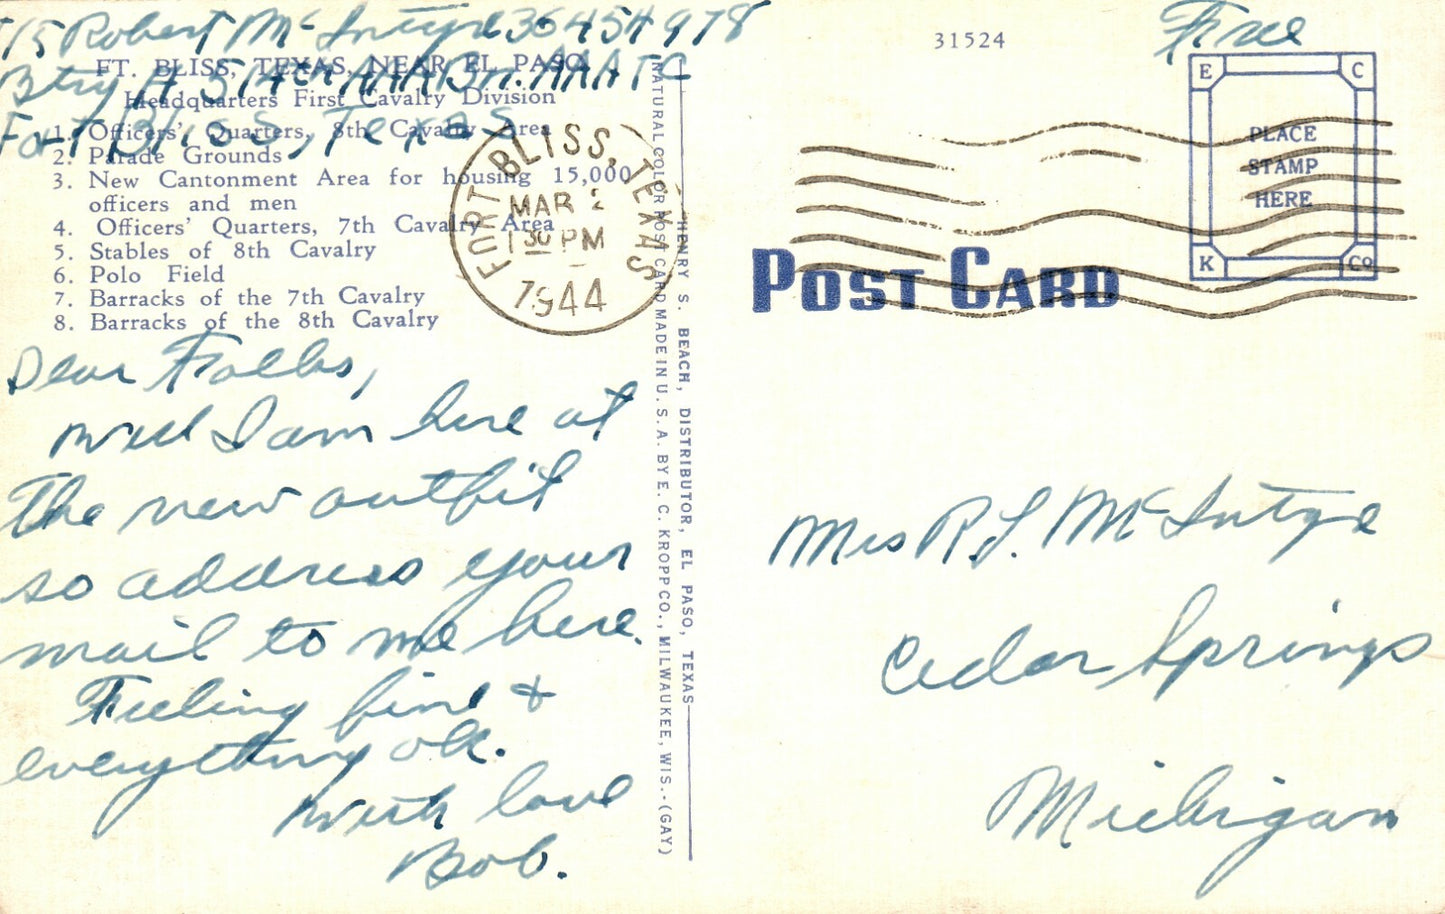 T/5 Robert McIntyre 36454978
Btry A 514th AAA Bn. AAATC
Fort Bliss, Texas
FT. BLISS, TEXAS, NEAR EL PASO
Headquarters First Cavalry Division
1. Officers' Quarters, 8th Cavalry Area
2. Parade Grounds
3. New Cantonment Area for housing 15,000
officers and men
4. Officers' Quarters, 7th Cavalry Area
5. Stables of 8th Cavalry
6. Polo Field
7. Barracks of the 7th Cavalry
8. Barracks of the 8th Cavalry
Dear Folks,
well I am here at
the new outfit
so address your
mail to me here.
Feeling fine &
everything ok.
with love
Bob.
FORT BLISS, TEXAS
MAR 2
1 30 PM
1944
NATURAL COLOR POST CARD MADE IN U. S. A. BY E. C. KROPP CO., MILWAUKEE, WIS.-(GAY)
HENRY S. BEACH, DISTRIBUTOR, EL PASO, TEXAS
31524
Free
E C
PLACE
STAMP
HERE
K Co
POST CARD
Mrs R. L. McIntyre
Cedar Springs
Michigan